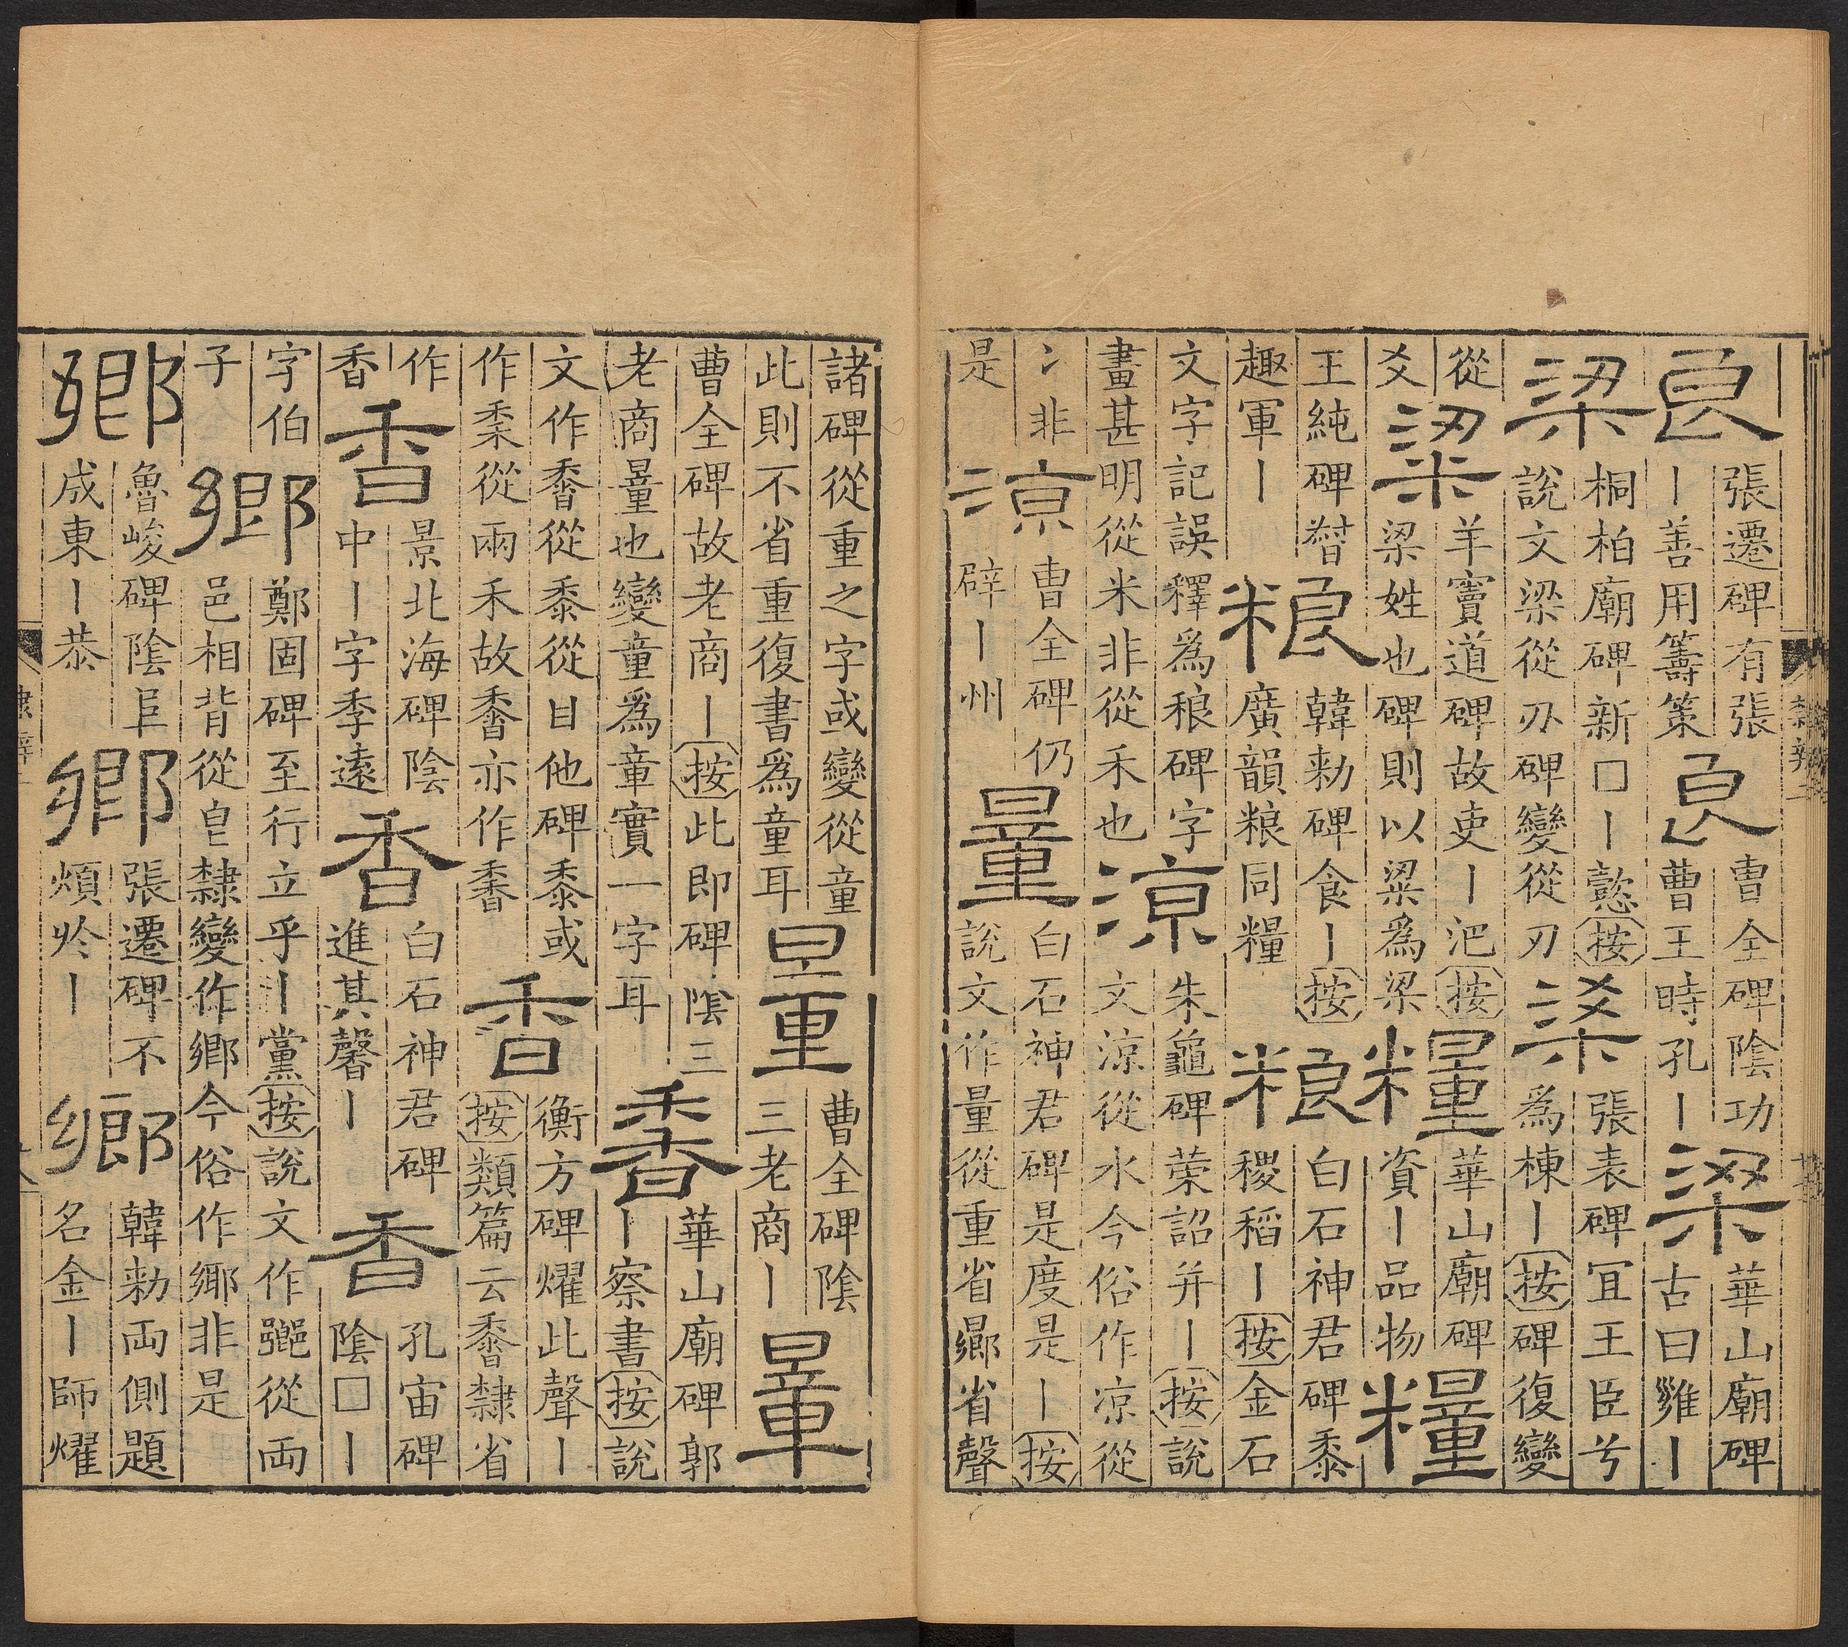 良
張遷碑有張
丨善用籌策
良
曹全碑陰功
曹王時孔丨
梁
華山廟碑
古曰雝丨
梁
桐柏廟碑新□丨懿按
說文梁從刅碑變從刃
梁
張表碑冝王臣兮
爲棟丨按碑復變
從
爻
粱
羊竇道碑故吏丨汜按
梁姓也碑則以粱爲梁
糧
華山廟碑
資丨品物
糧
王純碑朁
趣軍丨
粮
韓勑碑食丨按
廣韻粮同糧
粮
白石神君碑黍
稷稻丨按金石
文字記誤釋爲稂碑字
畫甚明從米非從禾也
涼
朱龜碑榮詔并丨按說
文涼從水今俗作凉從
冫非
是
涼
曹全碑仍
辟丨州
量
白石神君碑是度是丨按
說文作量從重省曏省聲
諸碑從重之字或變從童
此則不省重復書爲童耳
量
曹全碑陰
三老商丨
量
曹全碑故老商丨按此即碑陰三
老商量也變童爲章實一字耳
香
華山廟碑郭
丨察書按說
文作䅨從黍從甘他碑黍或
作䅨從兩禾故䅨亦作䅨
香
衡方碑燿此聲丨
按類篇云䅨隸省
作
香
香
景北海碑陰
中丨字季遠
香
白石神君碑
進其馨丨
香
孔宙碑
陰□丨
字伯
子
鄉
鄭固碑至行立乎丨黨按說文作𨞰從兩
邑相背從皀隸變作鄉今俗作鄊非是
鄉
魯峻碑陰𨸏
成東丨恭
鄉
張遷碑不
煩於丨
鄉
韓勑兩側題
名金丨師燿